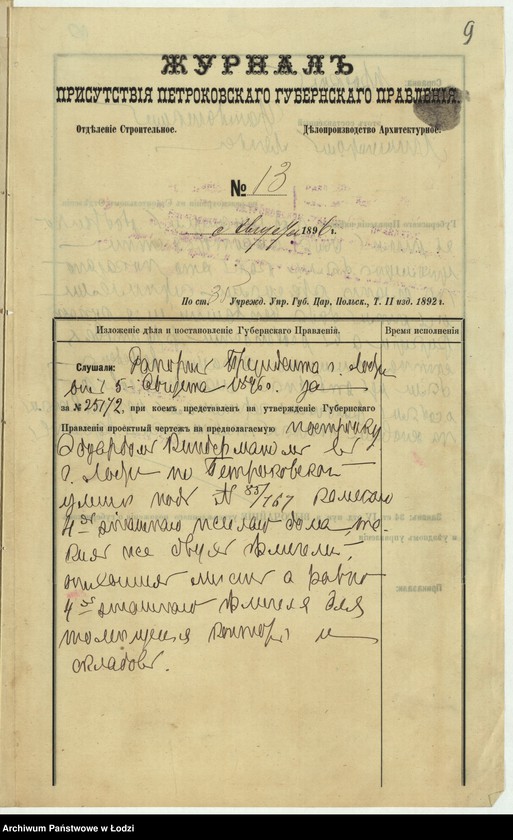 9
ЖУРНАЛЪ
ПРИСУТСТВІЯ ПЕТРОКОВСКАГО ГУБЕРНСКАГО ПРАВЛЕНІЯ.
Отдѣленіе Строительное. Дѣлопроизводство Архитектурное.
№ 13
Августа 1896 г.
По ст. Учрежд. Упр. Губ. Цар. Польск., Т. II изд. 1892 г.
Изложеніе дѣла и постановленіе Губернскаго Правленія. Время исполненія
Слушали: Рапортъ Президента г. Лодзи
5 Августа за
за № 25172, при коемъ представленъ на утвержденіе Губернскаго
Правленія проектный чертежъ на предполагаемую постройку
Эдуардомъ Киндерманомъ въ
г. Лодзи по Петроковской
улицѣ подъ № 85/767 каменнаго
4хъ этажнаго жилаго дома, та-
кихъ же двухъ флигелей,
мѣстъ а равно
4хъ этажнаго флигеля для
помѣщенія конторы и
складовъ.
Archiwum Państwowe w Łodzi